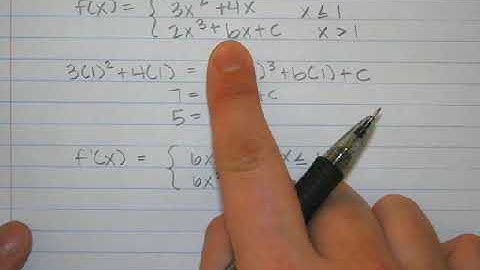 f(x) = { 3x² + 4x x ≤ 1
2x³ + bx + c x > 1
3(1)² + 4(1) = )³ + b(1) + c
7 = + c
5 =
f'(x) = { 6x x ≤
6x²